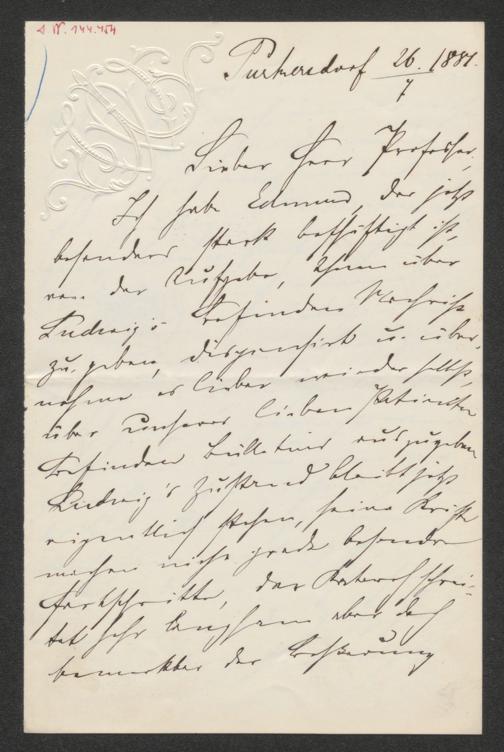 J. N. 144.454
Purkersdorf 26./7 1881.
Lieber Herr Professor,
Ich habe Edmund, der jetzt
besonders stark beschäftigt ist,
von der Aufgabe, Ihnen über
Ludwig's Befinden Nachricht
zu geben, dispensirt u. über-
nehme es lieber wieder selbst,
über unseres lieben Patienten
Befinden Bulletins auszugeben
Ludwig's Zustand bleibt jetzt
eigentlich stehen, seine Kräfte
machen nicht grade besondere
Fortschritte, der Katarrh schrei-
tet sehr langsam aber doch
bemerkbar der Besserung